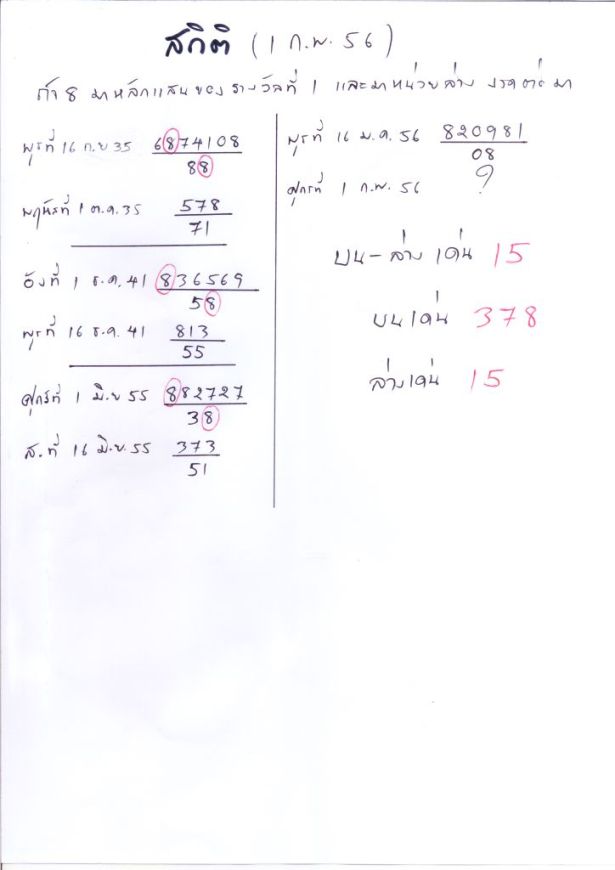 สถิติ (1 ก.พ. 56)
ถ้า 8 มาหลักแสนของรางวัลที่ 1 และมาหน่วยล่าง งวดต่อมา
พุธที่ 16 ก.ย 35 6874108
88
พฤหัสที่ 1 ต.ค. 35 578
71
อังที่ 1 ธ.ค. 41 836569
58
พุธที่ 16 ธ.ค. 41 813
55
ศุกร์ที่ 1 มิ.ย 55 882727
38
ส.ที่ 16 มิ.ย. 55 373
51
พุธที่ 16 ม.ค. 56 820981
08
ศุกร์ที่ 1 ก.พ. 56 ?
บน-ล่าง เด่น 15
บนเด่น 378
ล่างเด่น 15